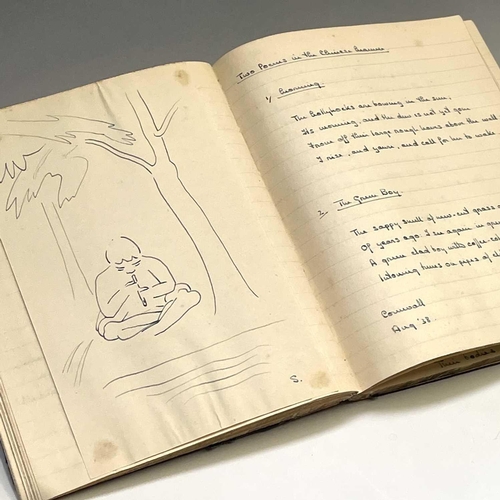 S.
Two Poems in the Chinese Manner.
1/ Morning.
The hollyhocks are bowing in the sun,
Its morning, and the dew is not yet gone
From off their large rough leaves above the wall
I rise, and yawn, and call for him to wake
2. The Green Boy.
The sappy smell of new-cut grass
Of years ago. I am again in
A green clad boy with
on pipes of
Cornwall
Aug '38.